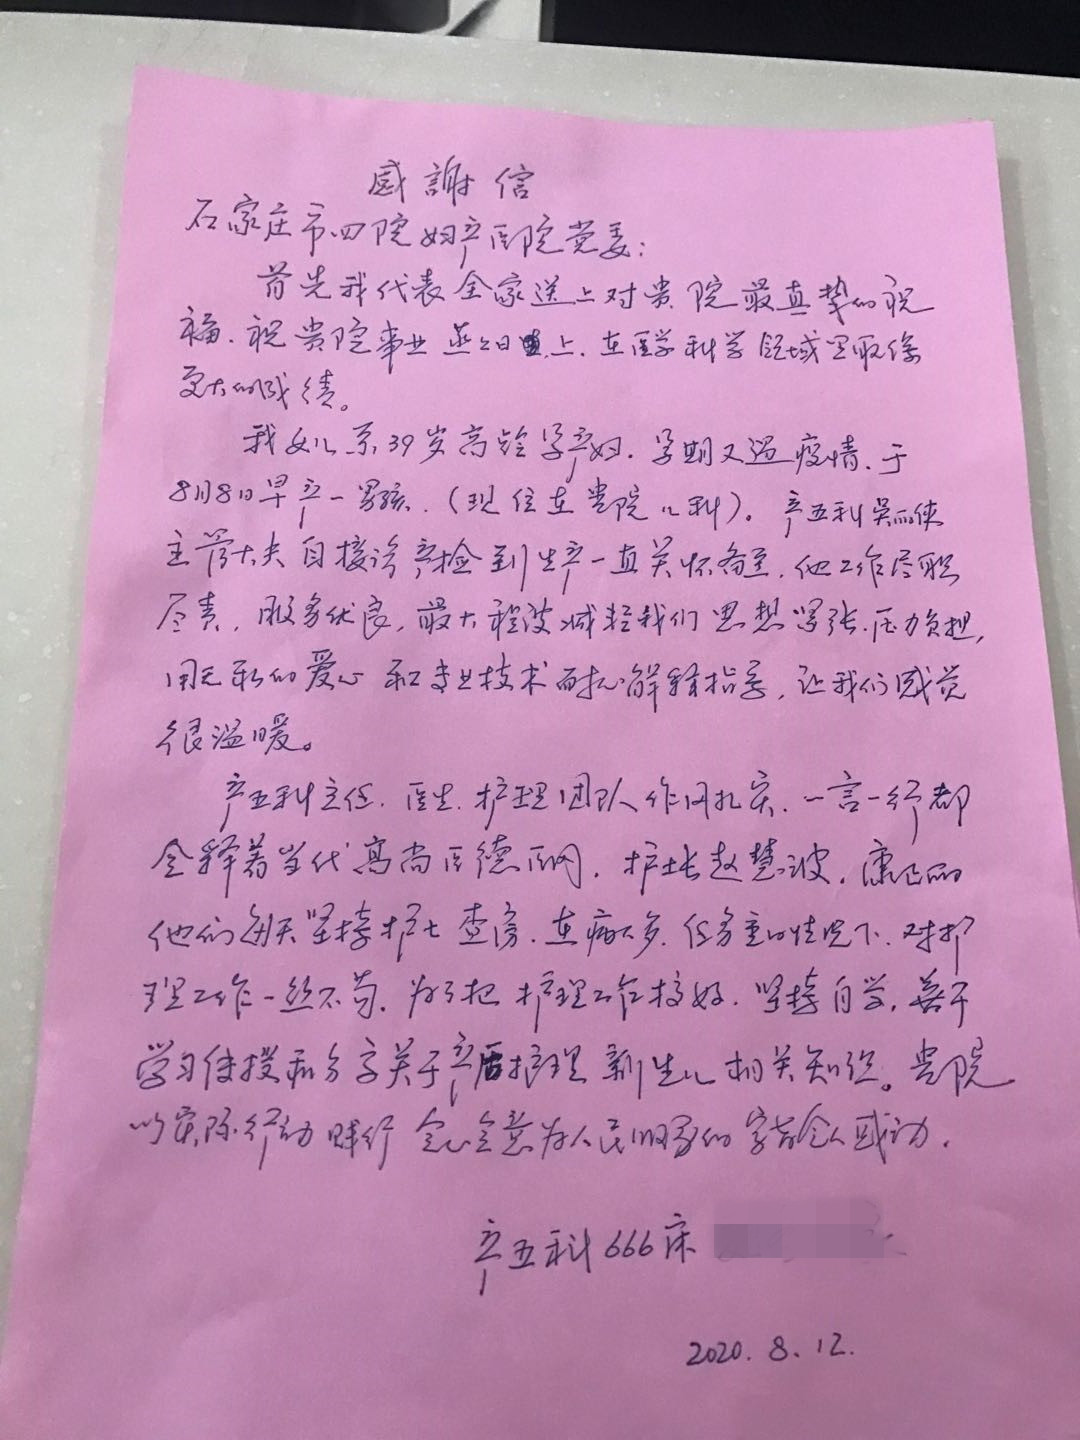 感謝信
石家庄市四院妇产医院党委:
首先我代表全家送上对贵院最真挚的祝
福.祝贵院事业蒸蒸日上.在医学科学领域里取得
更大的成绩。
我女儿系39岁高龄孕产妇.孕期又遇疫情.于
8月8日早产一男孩.(现住在贵院儿科)。产五科吴
主管大夫自接诊产检到生产一直关怀备至.他工作尽职
尽责,服务优良,最大程度减轻我们思想紧张.压力负担,
用无私的爱心和专业技术耐心解释指导,让我们感觉
很温暖。
产五科主任.医生.护理团队作风扎实.一言一行都
全释着当代高尚医德医风.护士长赵慧波.康
他们每天坚持护士查房.在病人多.任务重的情况下.对护
理工作一丝不苟.为了把护理工作搞好.坚持自学,善于
学习传授和分享关于产后护理新生儿相关知识。贵院
以实际行动践行全心全意为人民服务的宗旨令人感动.
产五科666床
2020.8.12.